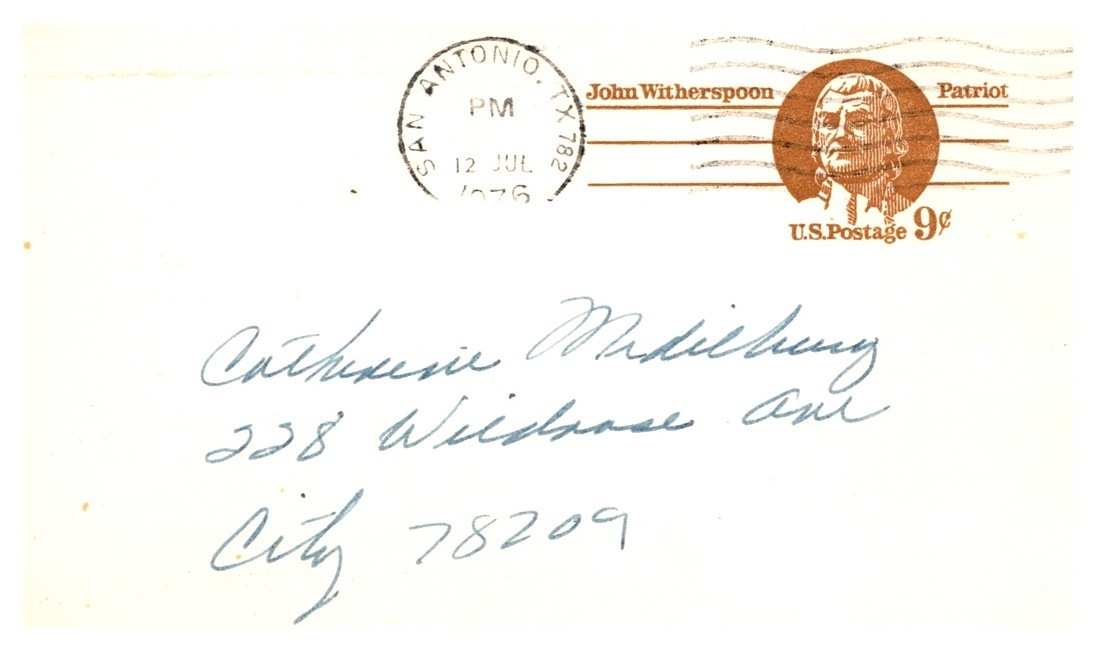 SAN ANTONIO, TX 782
PM
12 JUL
1976
John Witherspoon Patriot
U.S. Postage 9¢
Catherine Medilburg
228 Wildrose Ave
City 78209